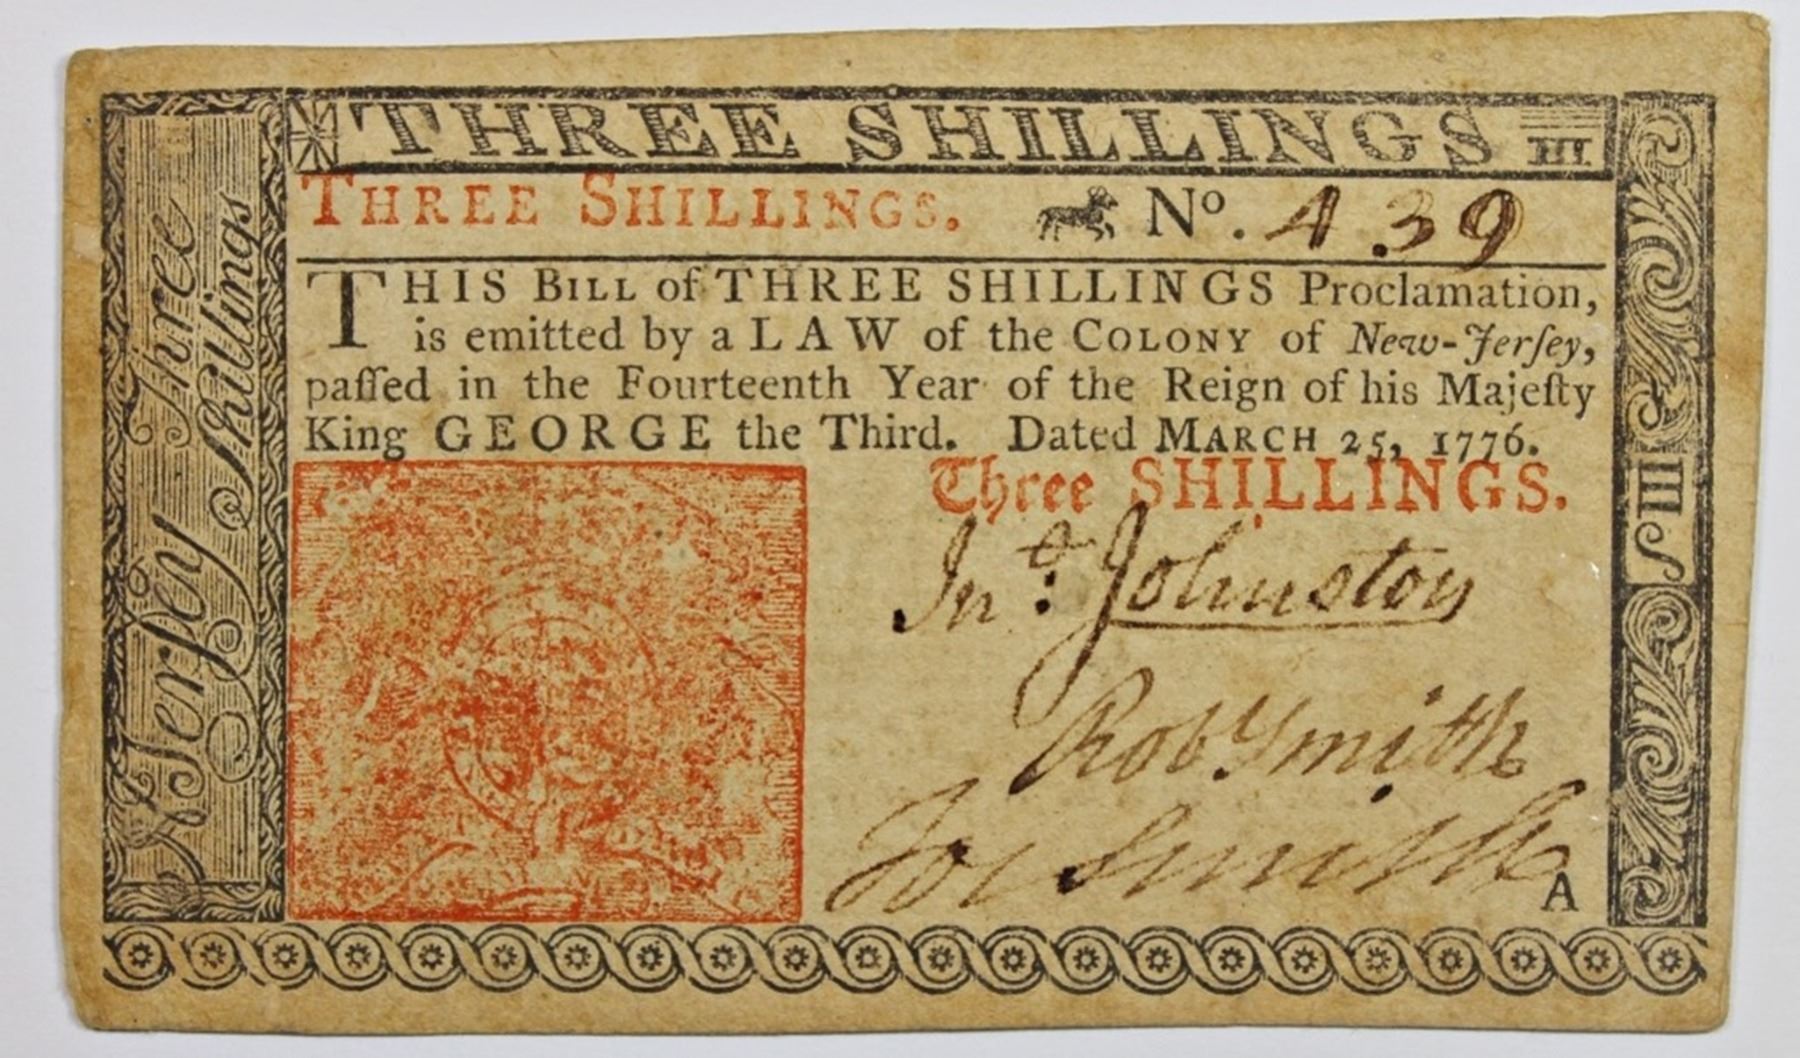 THREE SHILLINGS III
THREE SHILLINGS. No. 439
THIS BILL of THREE SHILLINGS Proclamation,
is emitted by a LAW of the COLONY of New-Jerſey,
paſſed in the Fourteenth Year of the Reign of his Majeſty
King GEORGE the Third. Dated MARCH 25, 1776.
Three SHILLINGS.
Jno. Johnston
Robt Smith
Jos Smith
A
N Jerſey Three
Shillings
III S